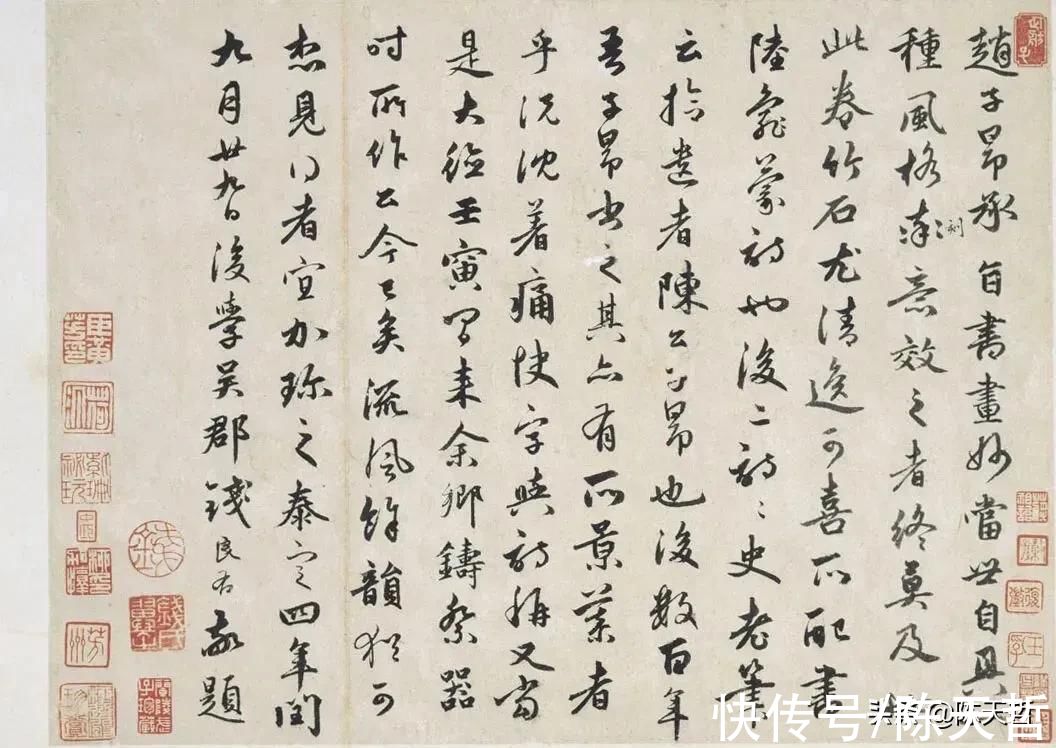 趙子昂承旨書畫妙當世自具一
種風格刻意效之者終莫及
此卷竹石尤清逸可喜所配書
陸龜蒙詩也後二詩〻史老筆
云拾遺者陳公子昂也後數百年
吾子昂書之其亦有所景慕者
乎況沈着痛快字與詩稱又當
是大德壬寅間來余鄉鑄祭器
時所作公今已矣流風餘韻猶可
想見得者宜加珍之泰定四年閏
九月廿九日後學吳郡錢良右敬題
快传号/陈天哲
头条 @陈天哲